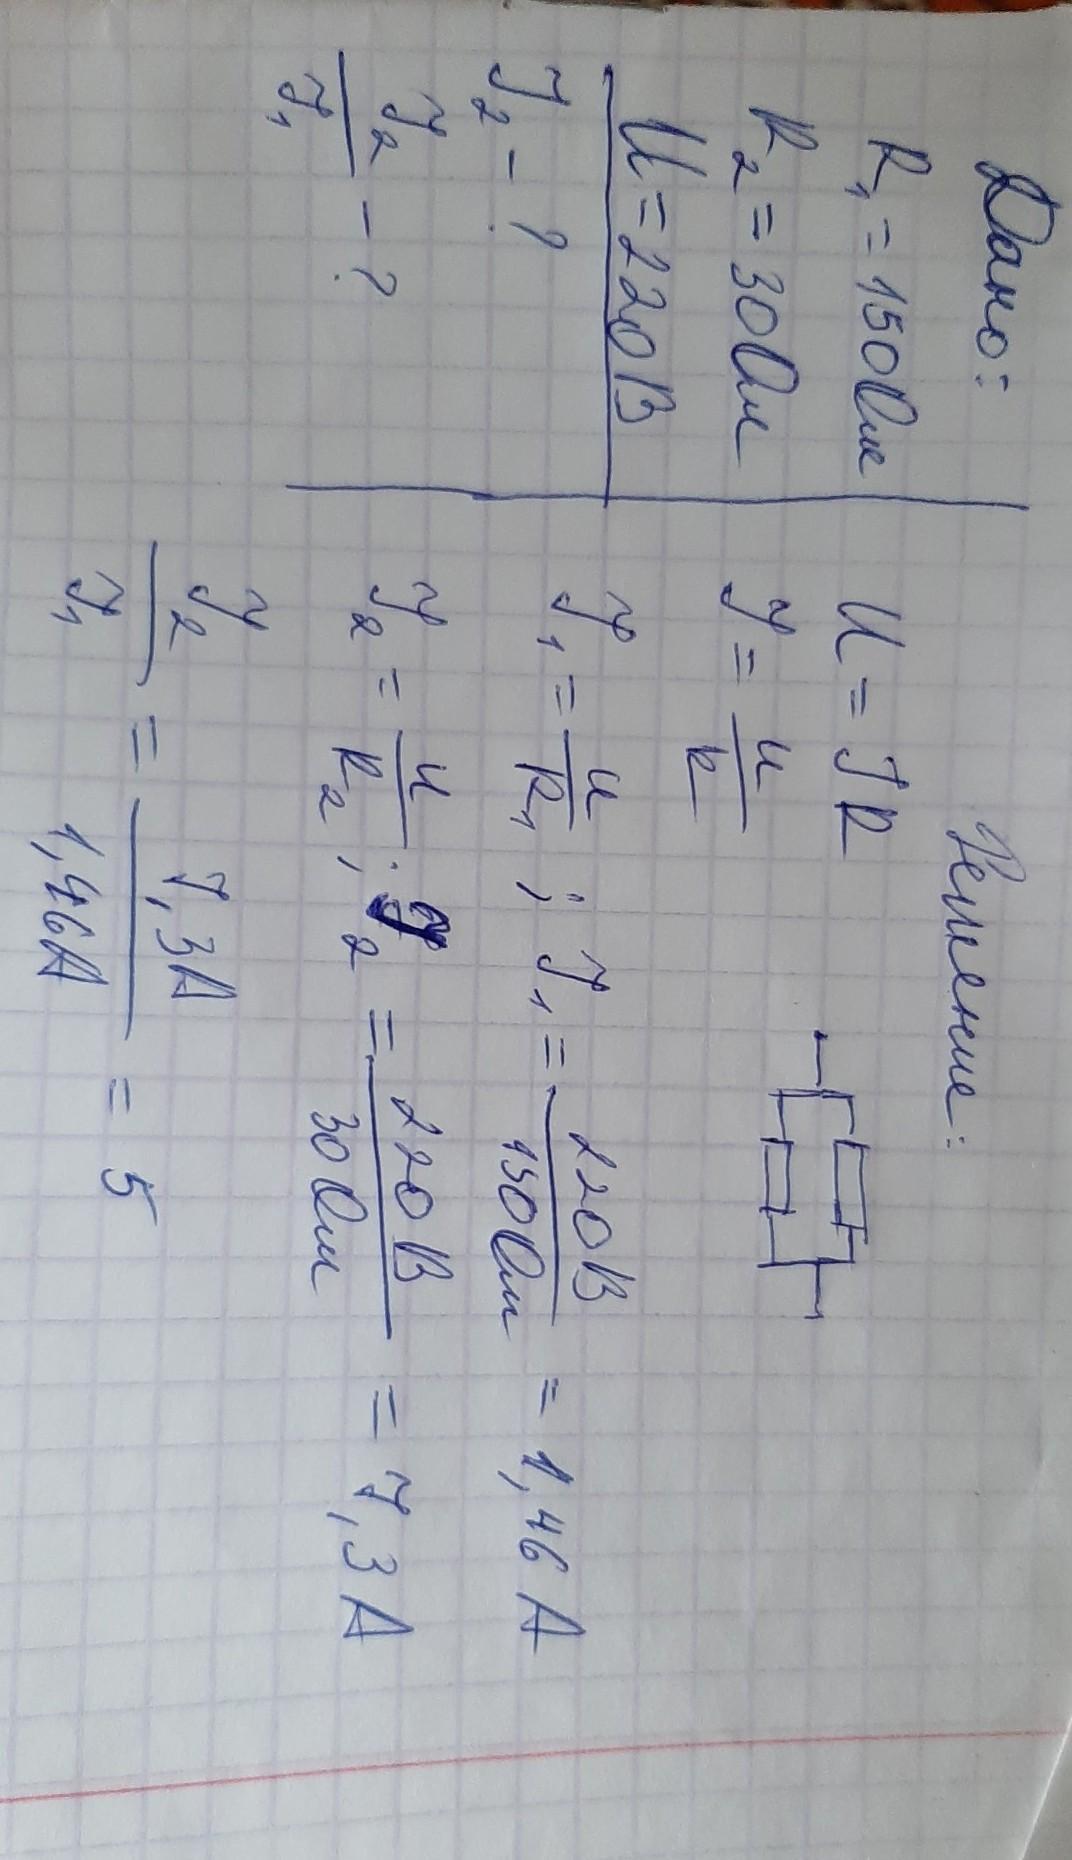 Дано:
R₁ = 150 Ом
R₂ = 30 Ом
U = 220 В
I₂ - ?
I₂/I₁ - ?
Решение:
U = IR
I = U/R
I₁ = U/R₁ ; I₁ = 220 В/150 Ом = 1,46 А
I₂ = U/R₂ ; I₂ = 220 В/30 Ом = 7,3 А
I₂/I₁ = 7,3 А/1,46 А = 5